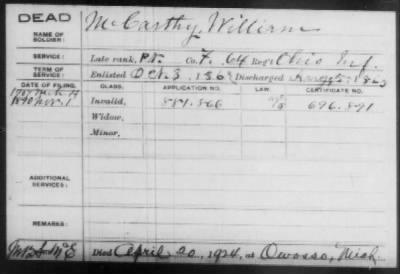 DEAD
NAME OF SOLDIER: McCarthy, William
SERVICE: Late rank, Pt. Co. F. 64 Reg't Ohio Inf.
TERM OF SERVICE: Enlisted Oct. 3, 186 Discharged 1863
DATE OF FILING. CLASS. APPLICATION NO. LAW. CERTIFICATE NO.
1890 Nov. 1 Invalid, 881.866 696.891
Widow,
Minor,
ADDITIONAL SERVICES:
REMARKS:
Died April 20, 1924, at Owosso, Mich.